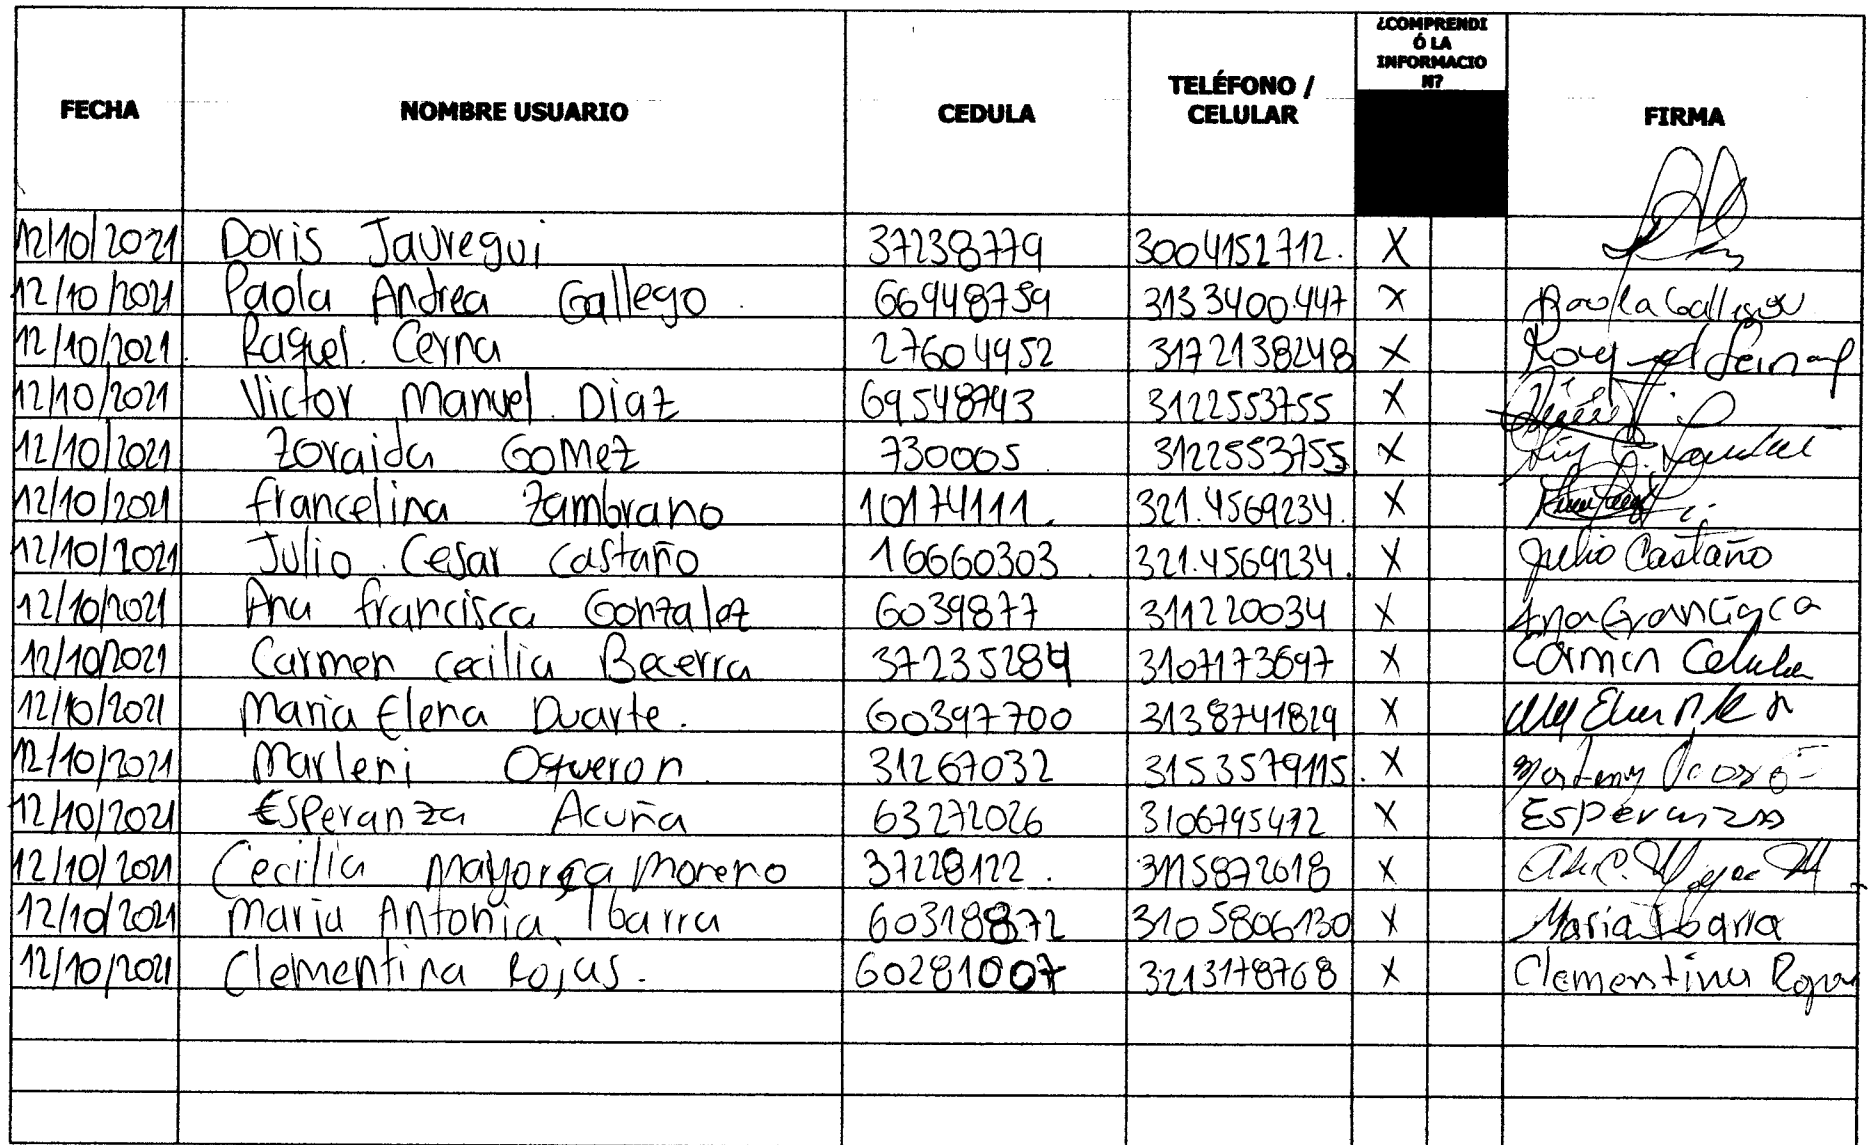 FECHA NOMBRE USUARIO CEDULA TELÉFONO / CELULAR ¿COMPRENDIÓ LA INFORMACION? FIRMA
12/10/2021 Doris Jauregui 37238779 3004152712. X
12/10/2021 Paola Andrea Gallego. 66948759 3133400.447 X Paola Gallego
12/10/2021. Raquel. Cerna 27604952 3172138248 X
12/10/2021 Victor Manuel Diaz 69548743 3122553755 X
12/10/2021 Zoraida Gomez 730005 3122553755 X
12/10/2021 francelina Zambrano 10174111. 321.4569234. X
12/10/2021 Julio. Cesar Castaño 16660303. 321.4569234. X Julio Castaño
12/10/2021 Ana francisca Gonzalez 6039877 311220034 X Ana Francisca
12/10/2021 Carmen cecilia Becerra 37235284 3107173697 X Carmen
12/10/2021 Maria Elena Duarte. 60397700 3138741829 X
12/10/2021 Marleni Osqueron. 31267032 3153579115. X
12/10/2021 Esperanza Acuña 63272026 3106795412 X Esperanza
12/10/2021 Cecilia Mayorga Moreno 37228122. 3115872618 X
12/10/2021 Maria Antonia Ibarra 60318872 3105806130 X Maria Ibarra
12/10/2021 Clementina Rojas. 60281007 3213178768 X Clementina Rojas